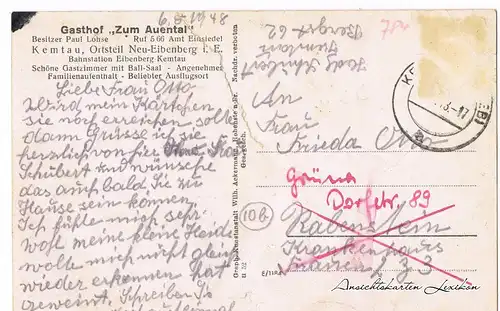 6.8.1948
Gasthof „Zum Auental"
Besitzer Paul Lohse Ruf 566 Amt Einsiedel
Kemtau, Ortsteil Neu-Eibenberg i. E.
Bahnstation Eibenberg Kemtau
Schöne Gastzimmer mit Ball-Saal - Angenehmer
Familienaufenthalt - Beliebter Ausflugsort
Liebe Frau Otto
Wird mein Kärtchen
sie noch erreichen sollte
dann Grüsse ich sie
herzlich von hier Frau
Schubert und wünsche
das auch bald Sie zu
Hause sein können.
Ich fühle mich sehr
wohl meine kleine Heide
wollte mich nicht gleich
wieder erkennen hat
geweint. Schreiben Sie
Graphische Kunstanstalt Wilh. Ackermann
Nachdr. verboten
Schubert
Kemtau
62
784
An
Frau
Frieda Otto
Grüna
Dorfstr. 89
10b
Rabenstein
Krankenhaus
Frauen Zg 3
Ansichtskarten Lexikon